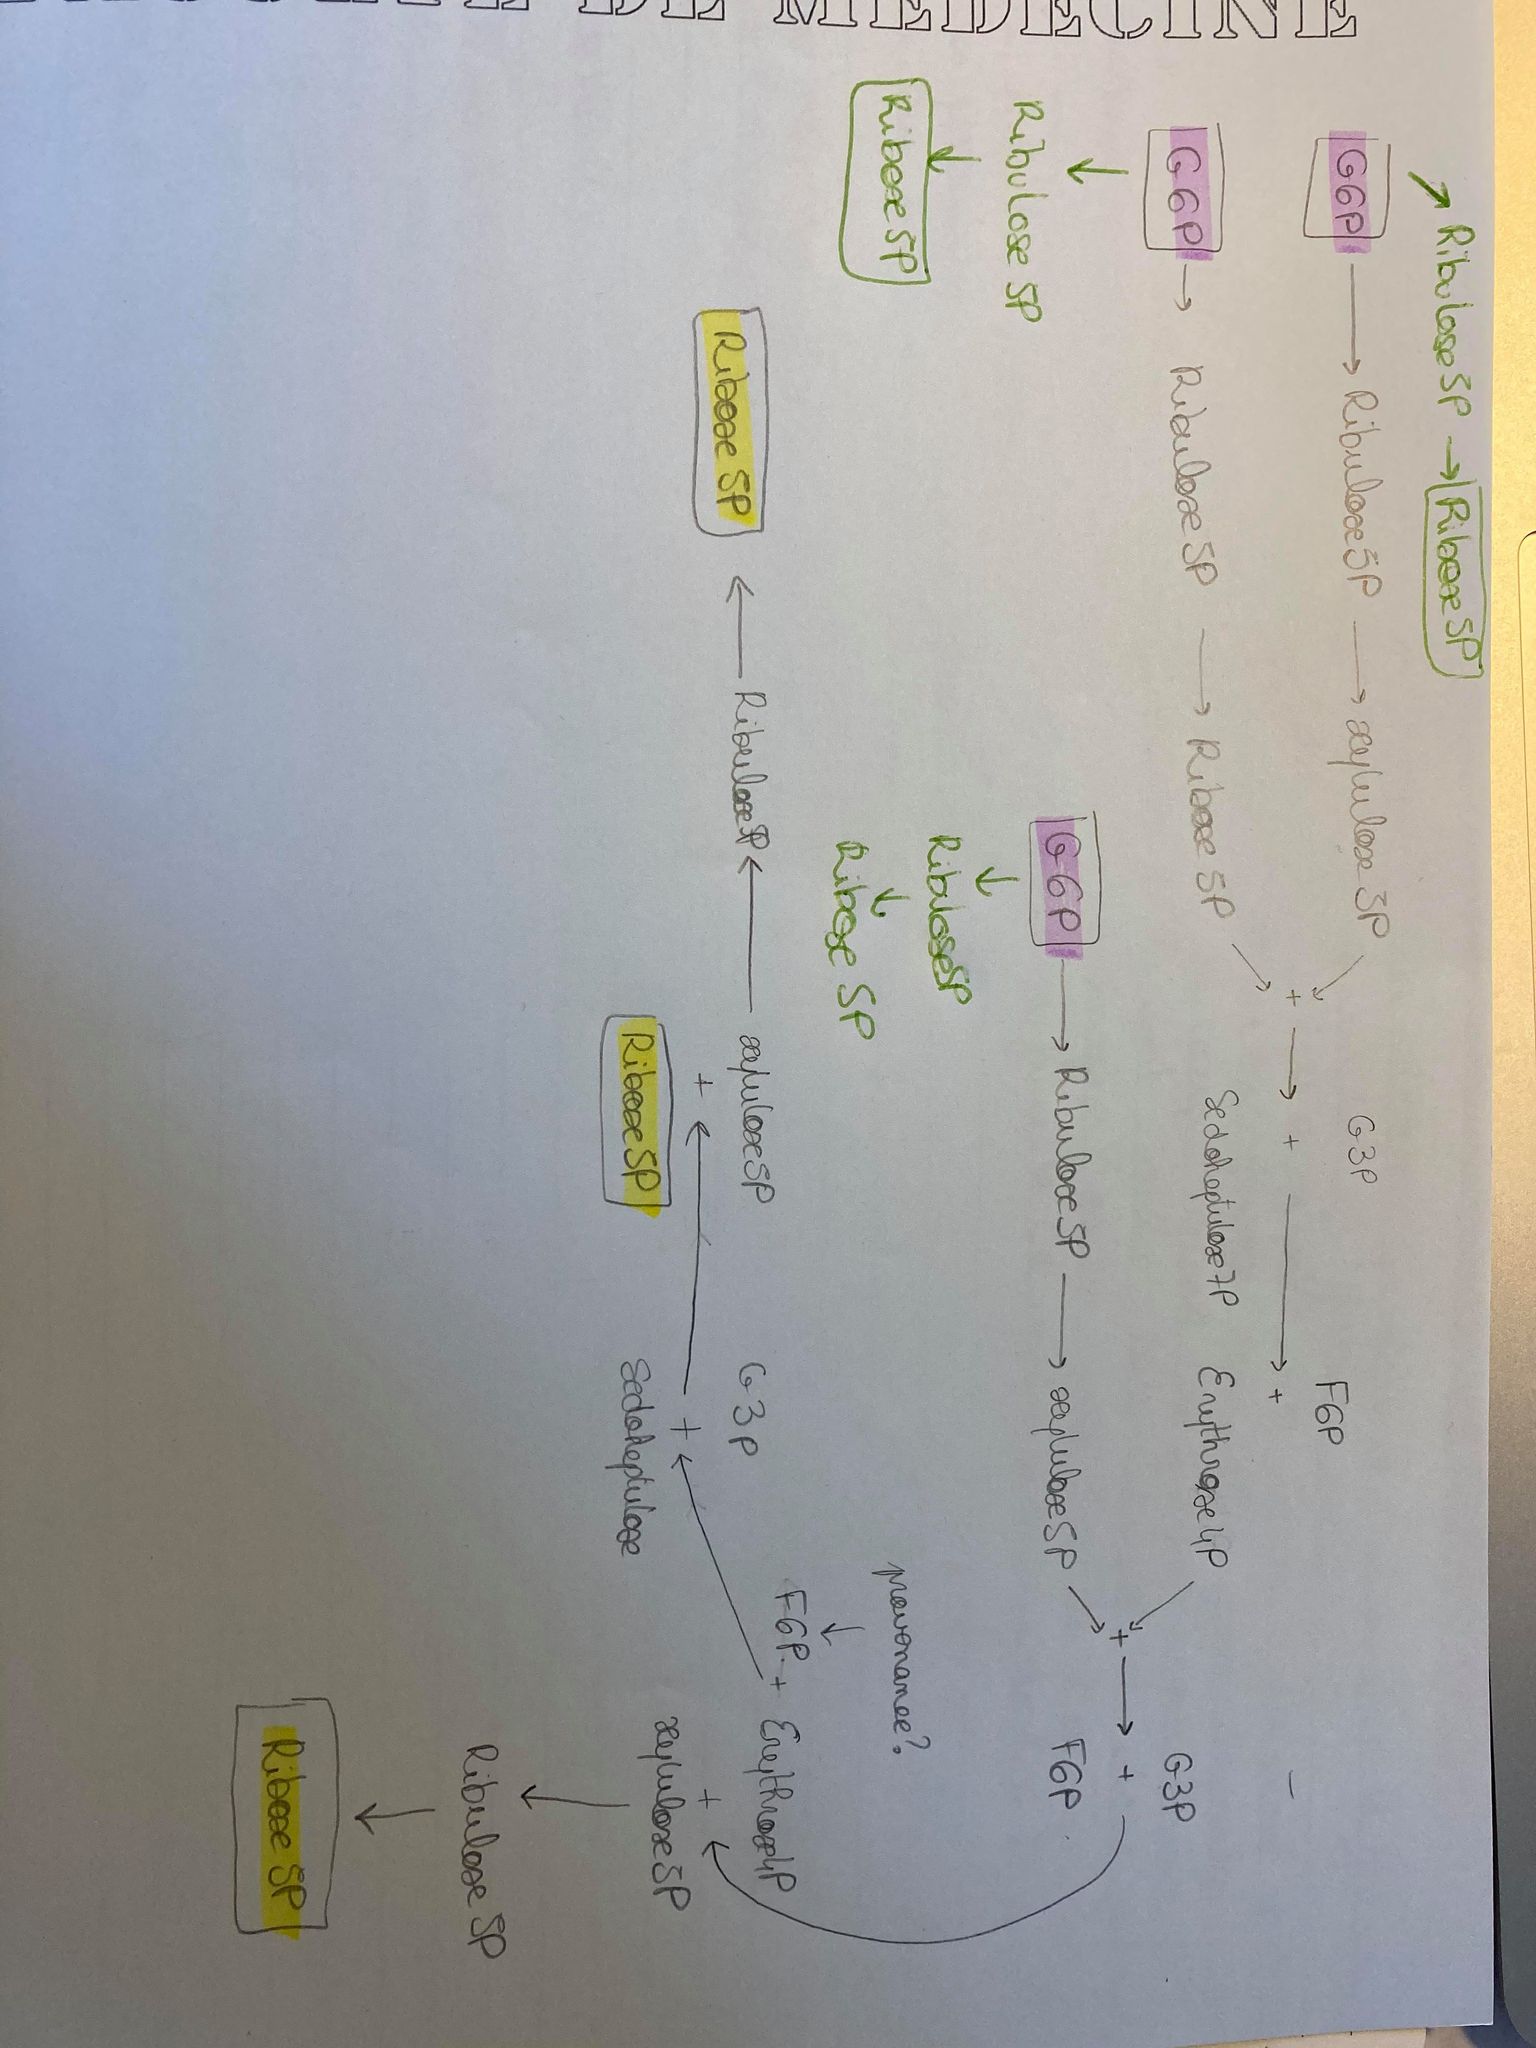 DE MEDECINE
Ribulose 5P → Ribose 5P
G6P → Ribulose 5P → xylulose 5P
G3P
F6P
+ → + → +
G6P → Ribulose 5P → Ribose 5P
Sedoheptulose 7P
Erythrose 4P
Ribulose 5P
Ribose 5P
G6P → Ribulose 5P → xylulose 5P
+ → +
G3P
F6P
Ribulose 5P
Ribose 5P
F6P + Erythrose 4P
+
xylulose 5P
Ribose 5P ← Ribulose 5P ← xylulose 5P
+
Ribose 5P
G3P
+
Sedoheptulose
Ribulose 5P
Ribose 5P